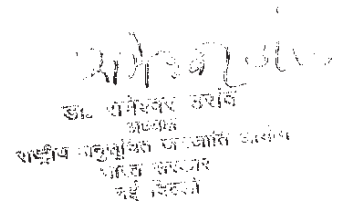 डा. रामेश्वर उरांव
अध्यक्ष
राष्ट्रीय अनुसूचित जनजाति आयोग
भारत सरकार
नई दिल्ली